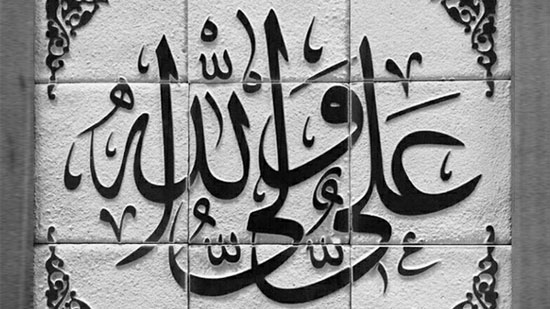 علیٌّ ولیُّ الله